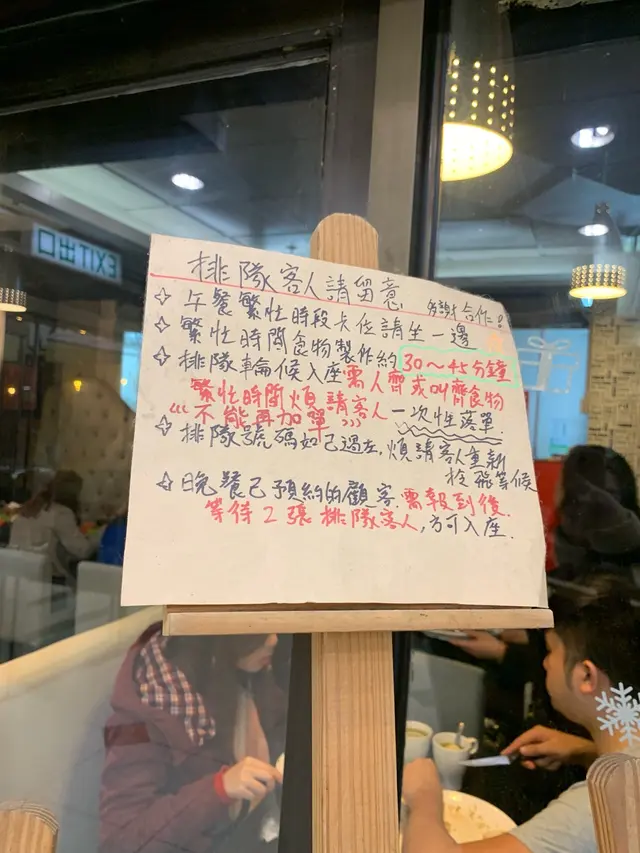 EXIT 出口
排隊客人請留意
多謝合作！
午餐繁忙時段卡位請坐一邊
繁忙時間食物製作約30～45分鐘
排隊輪候入座需人齊或叫齊食物
繁忙時間煩請客人一次性落單
《《不能再加單》》
排隊號碼如已過左，煩請客人重新
拎飛等候
晚餐已預約的顧客，需報到後，
等待2張排隊客人，方可入座．